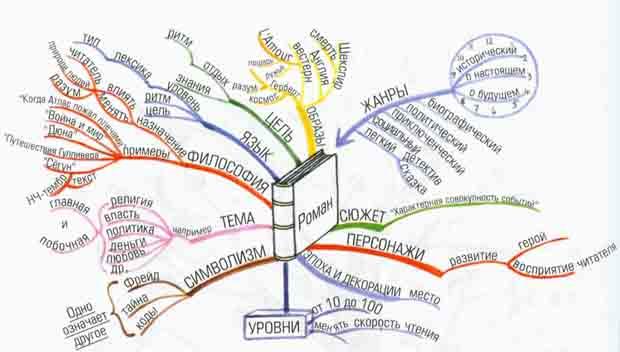 Роман
ЖАНРЫ
исторический
о настоящем
о будущем
12
биографический
политический
приключенческий
социальный
легкий
детектив
сказка
СЮЖЕТ
"Характерная совокупность событий"
ПЕРСОНАЖИ
развитие
герой
восприятие читателя
ЭПОХА И ДЕКОРАЦИИ
место
УРОВНИ
от 10 до 100
менять скорость чтения
СИМВОЛИЗМ
Фрейд
тайна
коды
Одно
означает
другое
ТЕМА
например
религия
власть
политика
деньги
любовь
др.
главная
и
побочная
ФИЛОСОФИЯ
назначение
влиять
менять
читатель
природа людей
разум
примеры
"Когда Атлас пожал плечами"
"Война и мир"
"Дюна"
"Путешествия Гулливера"
"Сёгун"
текст
НЧ-тембр
ЯЗЫК
уровень
лексика
тип
ритм
цель
ЦЕЛЬ
знания
отдых
ритм
ОБРАЗЫ
Шекспир
смерть
Англия
вестерн
L'Amour
лошадь
ружьё
Герберт
разум
космос